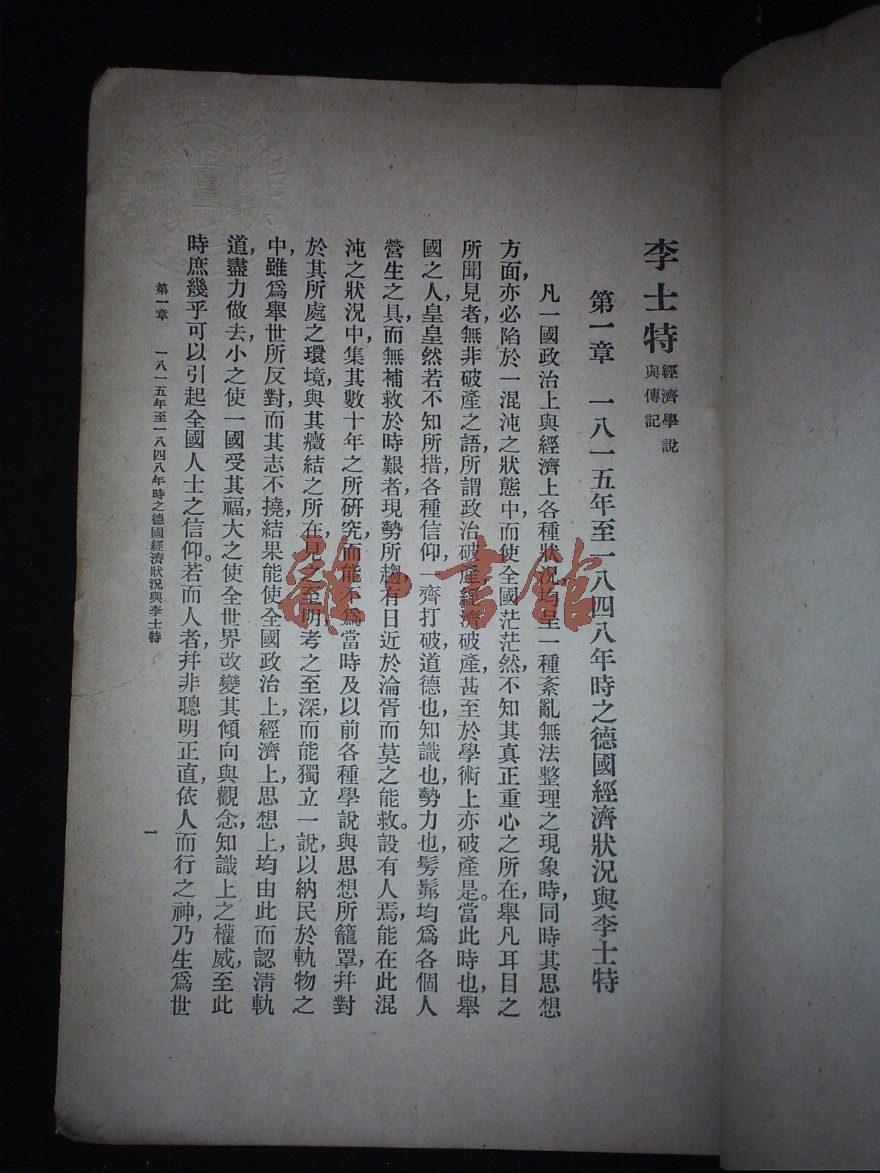 李士特經濟學說與傳記
第一章　一八一五年至一八四八年時之德國經濟狀況與李士特
凡一國政治上與經濟上各種狀況，均呈一種紊亂無法整理之現象時，同時其思想
方面，亦必陷於一混沌之狀態中，而使全國茫茫然不知其真正重心之所在，舉凡耳目之
所聞見者，無非破產之語，所謂政治破產，經濟破產，甚至於學術上亦破產是。當此時也，舉
國之人，皇皇然若不知所措，各種信仰，一齊打破，道德也，知識也，勢力也，髣髴均爲各個人
營生之具，而無補救於時艱者，現勢所趨，有日近於淪胥而莫之能救。設有人焉，能在此混
沌之狀況中，集其數十年之所研究，而能不爲當時及以前各種學說與思想所籠罩，幷對
於其所處之環境，與其癥結之所在，見之至明，考之至深，而能獨立一說，以納民於軌物之
中，雖爲舉世所反對，而其志不撓，結果能使全國政治上，經濟上，思想上，均由此而認清軌
道，盡力做去，小之使一國受其福，大之使全世界改變其傾向與觀念，知識上之權威，至此
時庶幾乎可以引起全國人士之信仰。若而人者，幷非聰明正直，依人而行之神，乃生爲世
第一章　一八一五年至一八四八年時之德國經濟狀況與李士特
一
雜·書館